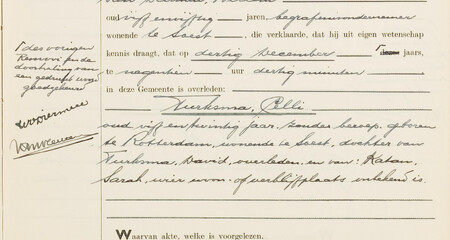 oud vijf en vijftig jaren, begrafenisondernemer
wonende te Soest, die verklaarde, dat hij uit eigen wetenschap
kennis draagt, dat op dertig December dezes jaars,
te negentien uur dertig minuten
in deze Gemeente is overleden:
Turksma, Celli
oud vijf en twintig jaar, zonder beroep, geboren
te Rotterdam, wonende te Soest, dochter van
Turksma, David, overleden, en van: Katan,
Sarah, wier woon- of verblijfplaats onbekend is.
Waarvan akte, welke is voorgelezen.
1 des vorigen
doorhaling van
een gedrukt woord
goedgekeurd